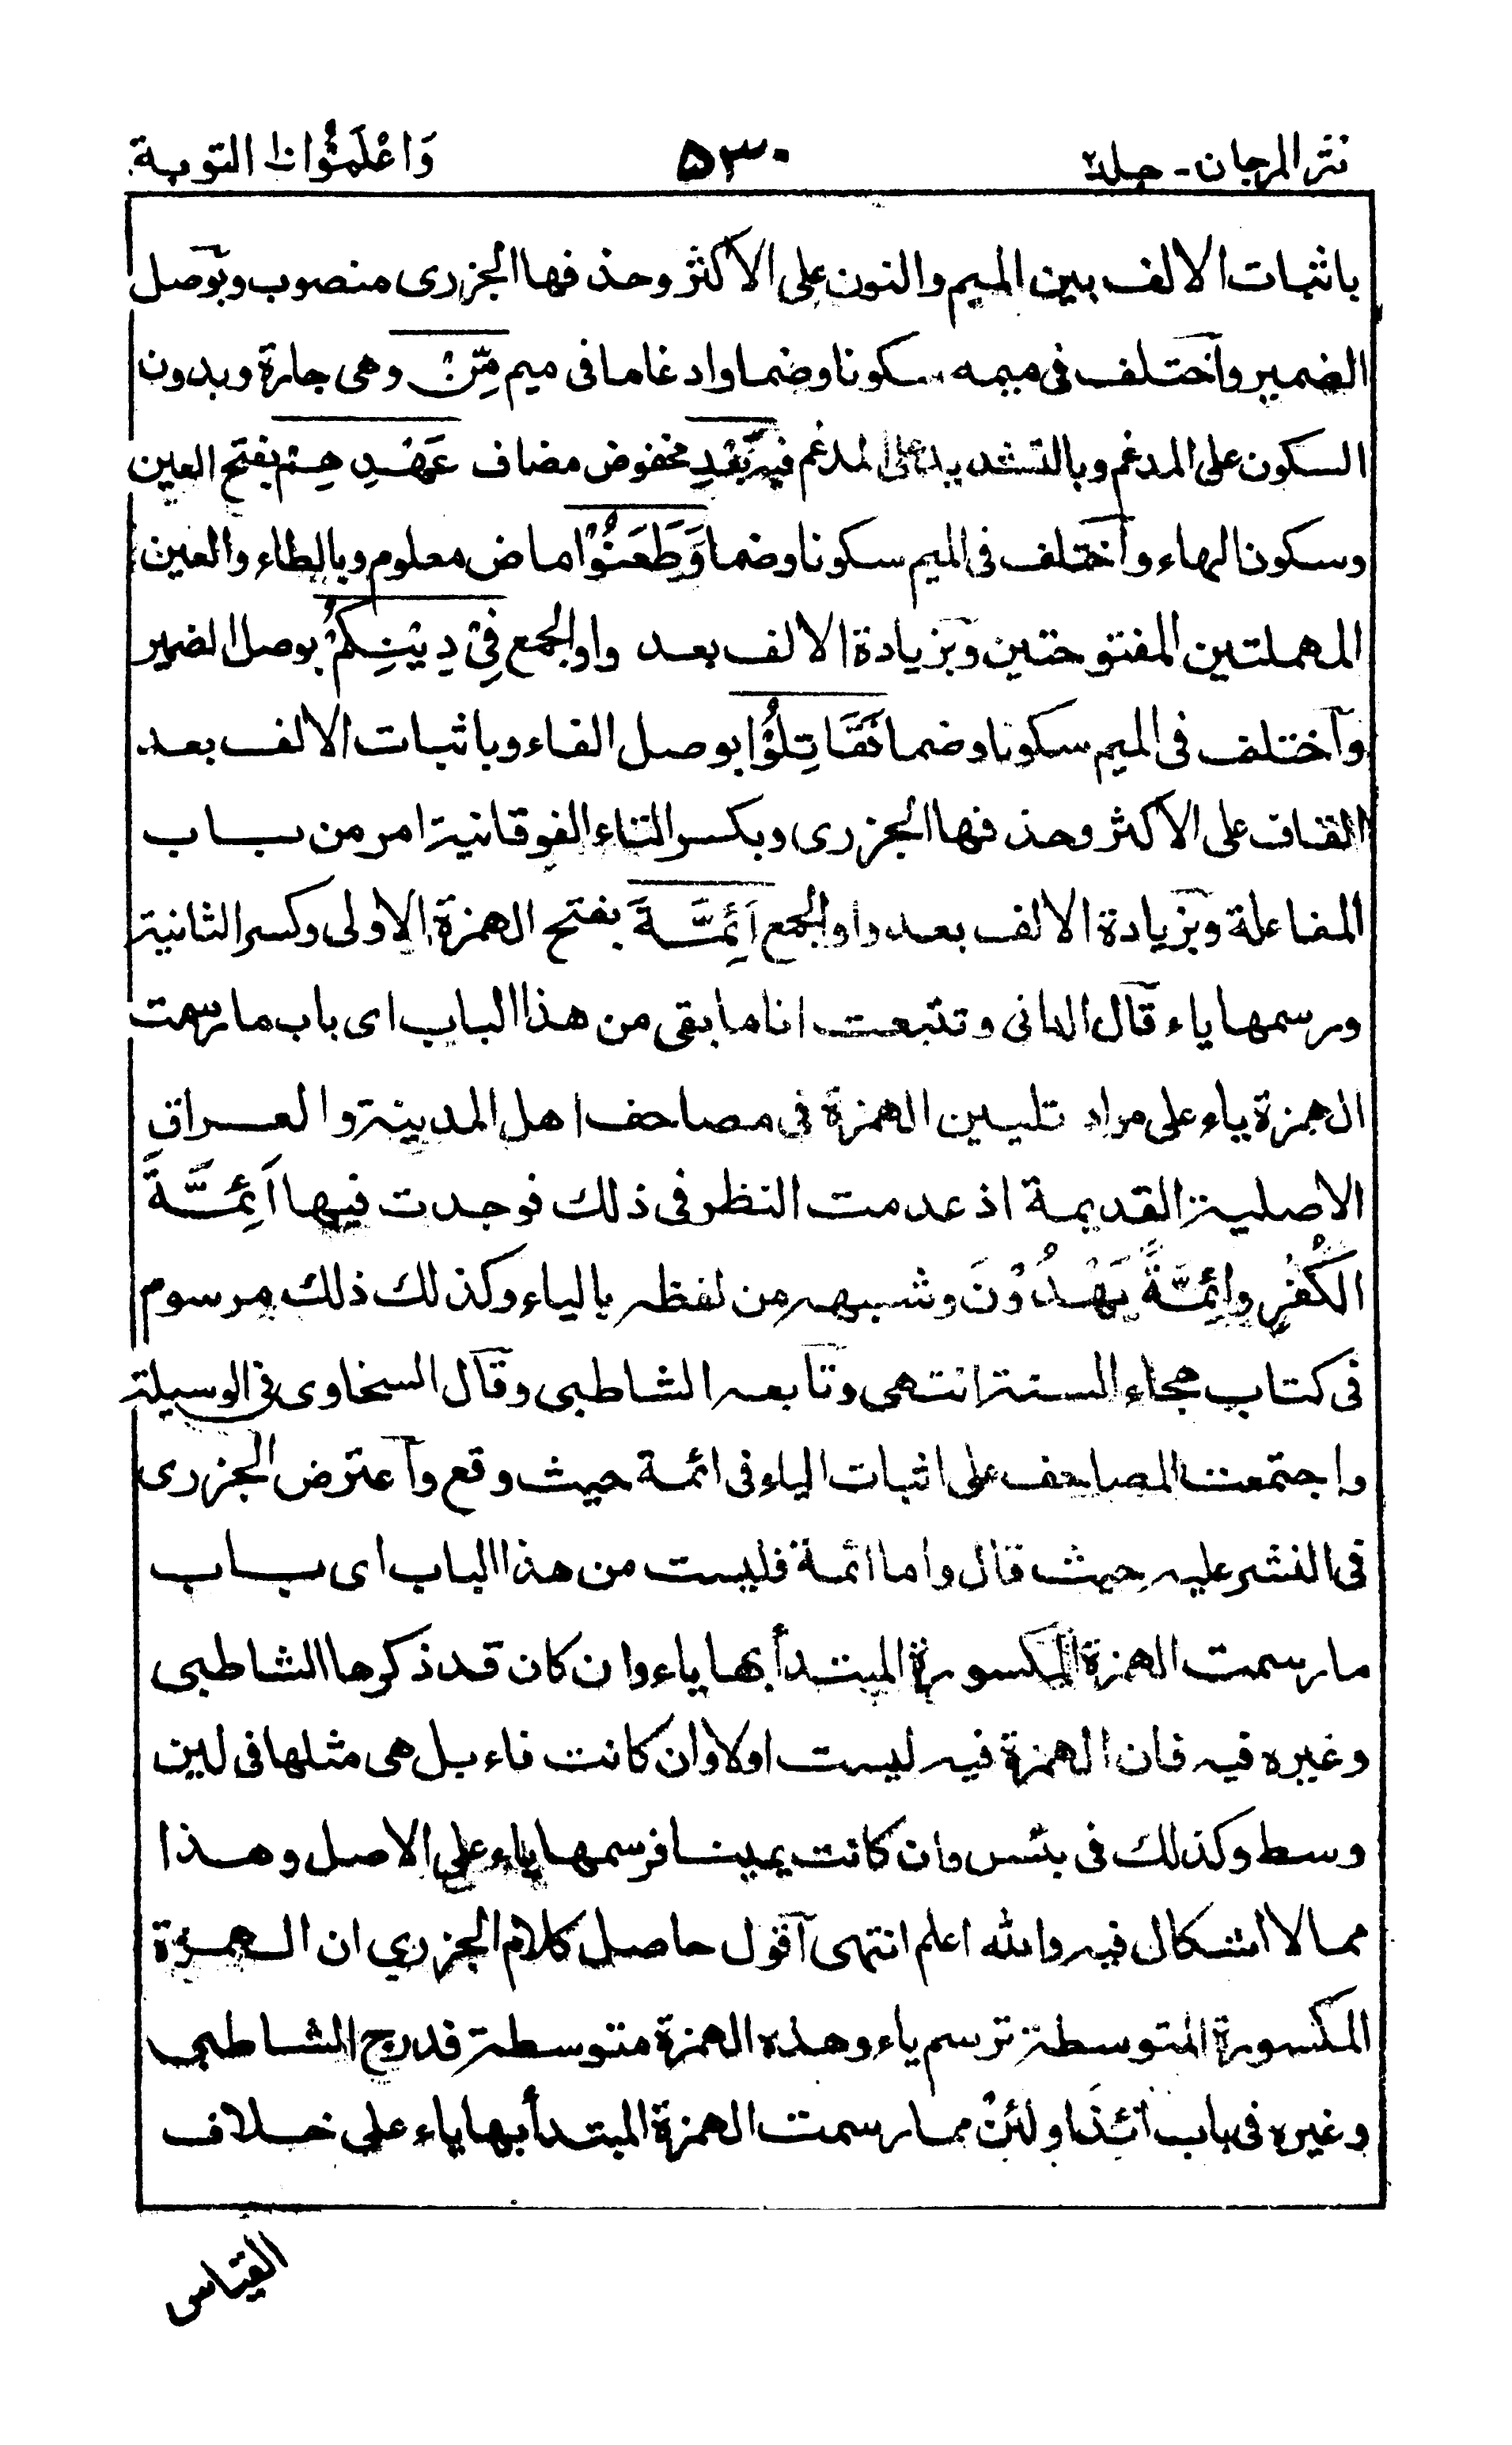 نثر المرجان - جلد٢
٥٣٠
وَاعْلَمُوْا١٠ التوبة
باثبات الالف بين الميم والنون على الاكثر وحذفها الجزرى منصوب وبوصل
الضمير واختلف فى ميمه سكونا وضما وادغاما فى ميم مِّنْ وهى جارة وبدون
السكون على المدغم وبالتشديد على المدغم فيه بَعْدِ مخفوض مضاف عَهْدِهِمْ بفتح العين
وسكون الهاء واختلف فى الميم سكونا وضما وَطَعَنُوْا ماض معلوم وبالطاء والعين
المهملتين المفتوحتين وبزيادة الالف بعد واو الجمع فِىْ دِيْنِكُمْ بوصل الضمير
واختلف فى الميم سكونا وضما فَقَاتِلُوْا بوصل الفاء وباثبات الالف بعد
القاف على الاكثر وحذفها الجزرى وبكسر التاء الفوقانية امر من باب
المفاعلة وبزيادة الالف بعد واو الجمع اَئِمَّةَ بفتح الهمزة الاولى وكسر الثانية
ورسمها ياء قال الدانى وتتبعت انا ما بقى من هذا الباب اى باب ما رسمت
الهمزة ياء على مراد تليين الهمزة فى مصاحف اهل المدينة والعراق
الاصلية القديمة اذ عدمت النظر فى ذلك فوجدت فيها اَئِمَّةَ
الْكُفْرِ وائِمَّةً يَهْدُوْنَ وشبهه من لفظه بالياء وكذلك ذلك مرسوم
فى كتاب هجاء السنة انتهى وتابعه الشاطبى وقال السخاوى فى الوسيلة
واجتمعت المصاحف على اثبات الياء فى ائمة حيث وقع واعترض الجزرى
فى النشر عليه حيث قال واما ائمة فليست من هذا الباب اى باب
ما رسمت الهمزة المكسورة المبتدأ بها ياء وان كان قد ذكرها الشاطبى
وغيره فيه فان الهمزة فيه ليست اولا وان كانت فاء بل هى مثلها فى لين
وسط وكذلك فى بئس وان كانت يمينا فرسمها ياء على الاصل وهذا
مما لا اشكال فيه والله اعلم انتهى اقول حاصل كلام الجزري ان الهمزة
المكسورة المتوسطة ترسم ياء وهذه الهمزة متوسطة فدرج الشاطبى
وغيره فى باب ائذا ولئن مما رسمت الهمزة المبتدأ بها ياء على خلاف
القياس